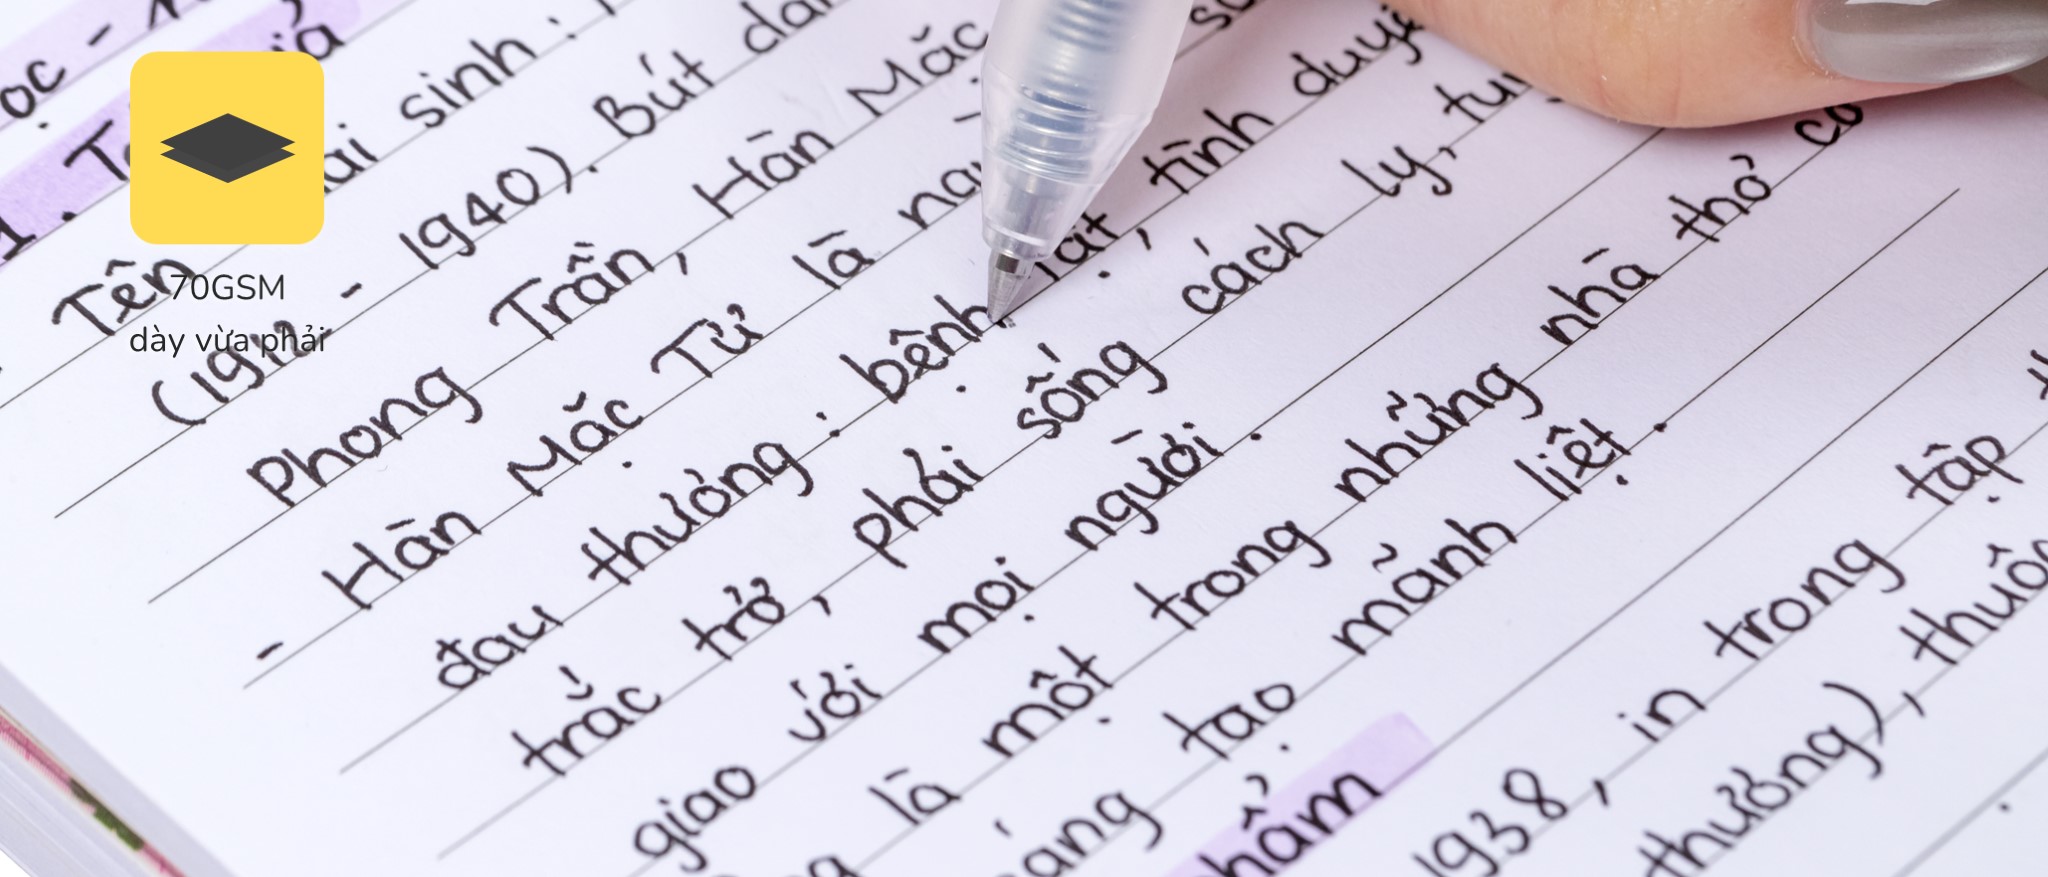 sinh :
Tên
(1912 - 1940). Bút
Phong Trần, Hàn Mặc
- Hàn Mặc Tử là
đau thương : bệnh tật, tình
trắc trở, phải sống cách ly,
giao với mọi người.
là một trong những nhà thơ có
sáng tạo mãnh liệt.
phẩm
1938, in trong tập
thương), thuộc
70GSM
dày vừa phải